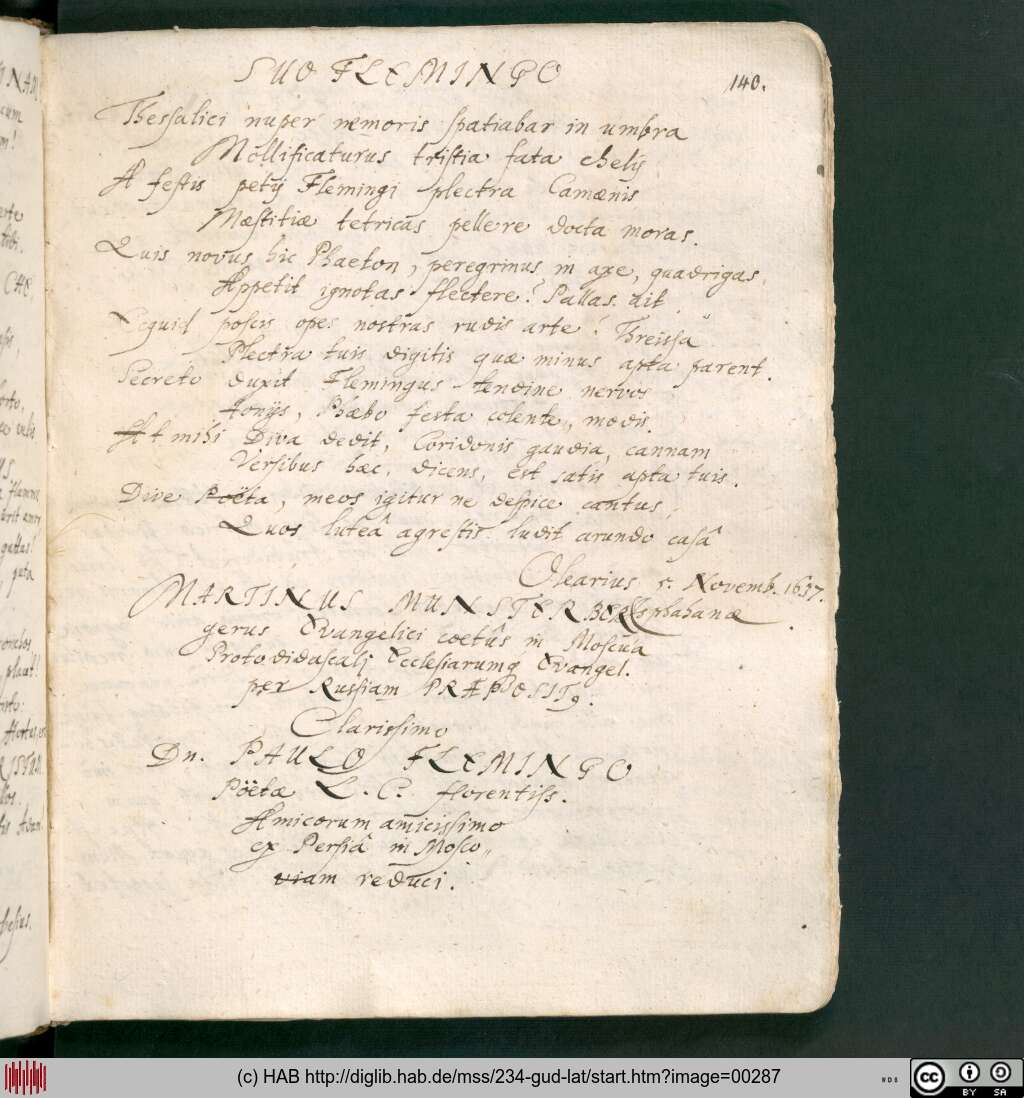 140.
SUO FLEMINGO
Thessalici nuper nemoris spatiabar in umbra
Mollificaturus tristia fata chelij
A festis petij Flemingi plectra Camænis
Mæstitiæ tetricas pellere docta moras.
Quis novus hic Phaeton, peregrinus in axe, quadrigas
Appetit ignotas flectere? Pallas. ait
Ecquid poscis opes nostras rudis arte? Threissa
Plectra tuis digitis quæ minus apta parent.
Secreto duxit Flemingus tendine nervos
Aonijs, Phæbo festa colente, modis.
At mihi Diva dedit, Coridonis gaudia, cannam
Versibus hæc, dicens, est satis apta tuis.
Dive Poëta, meos igitur ne despice cantus,
Quos luteâ agrestis ludit arundo casâ
Olearius 5. Novemb. 1637.
Isphahanæ
MARTINUS MUNSTERBER
gerus Evangelici coetûs in Moscua
Protodidascalj Ecclesiarumq Evangel.
per Russiam PRÆPOSIT9.
Clarissimo
Dn. PAULO FLEMINGO
Pöëtæ L. C. florentiss.
Amicorum amicissimo
ex Persiâ in Mosco„
viam reduci.
(c) HAB http://diglib.hab.de/mss/234-gud-lat/start.htm?image=00287
cc BY SA